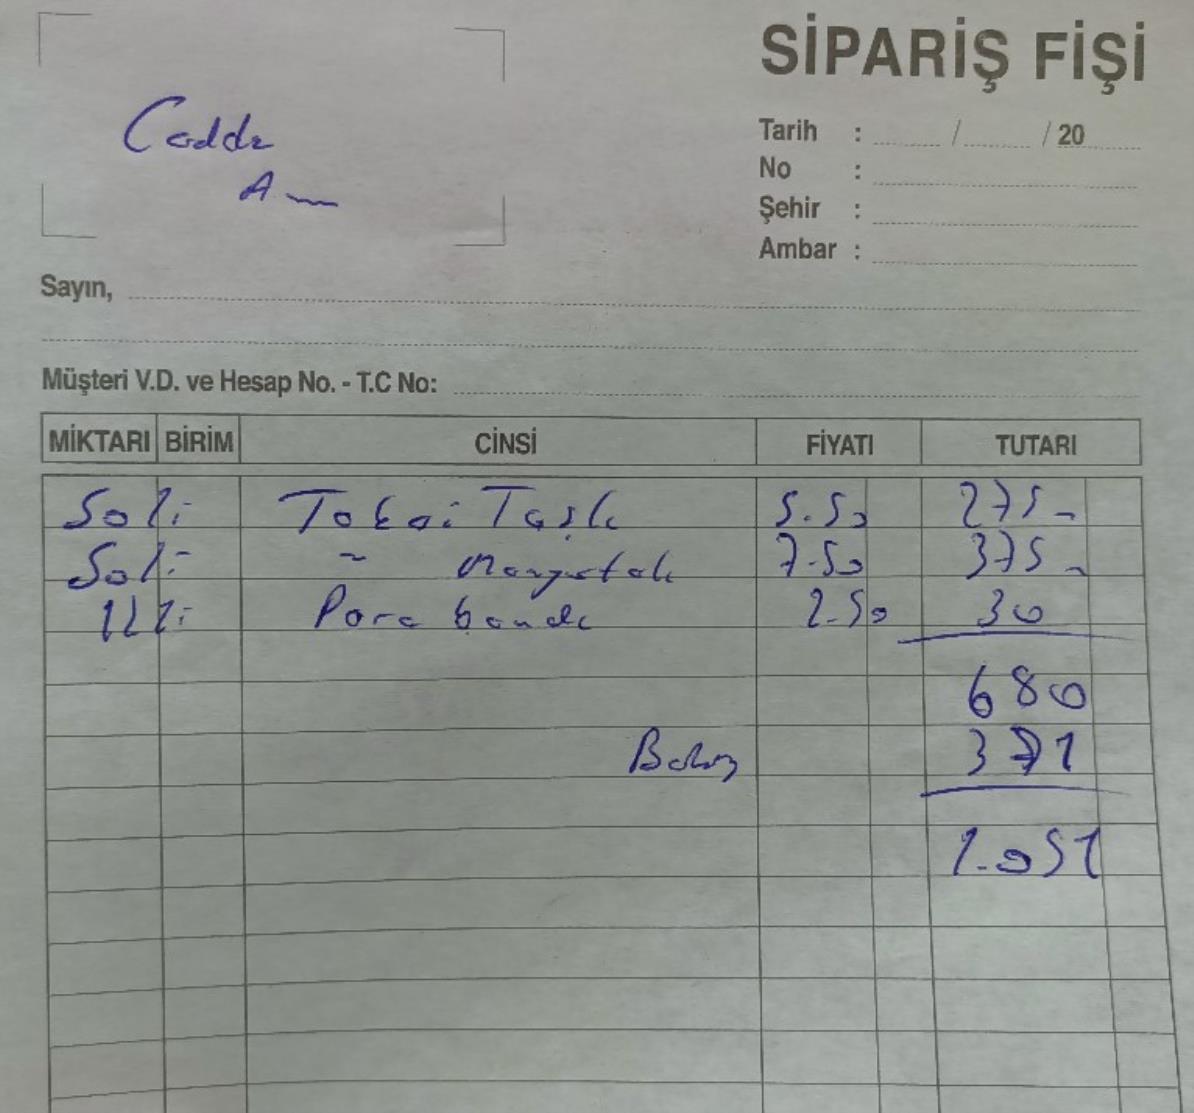 SİPARİŞ FİŞİ
Cadde
Tarih : ........ / ........ / 20 ........
No :
Şehir :
Ambar :
Sayın,
Müşteri V.D. ve Hesap No. - T.C No:
MİKTARI BİRİM CİNSİ FİYATI TUTARI
50 li Tokai Taşlı 5.50 275-
50 li - Manyetolu 7.50 375-
12 li Para bandı 2.50 30
680
371
1.051